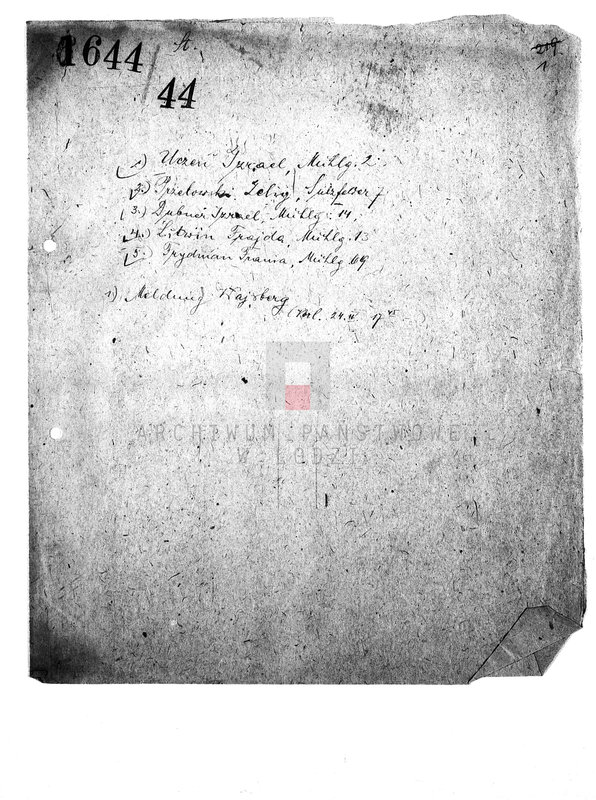 1644 A. 219
/44 1
1.) Uczeń Izrael, Mühlg. 2
2.) Przetowski Zelig, Sulzfelder 7
3.) Dubner Izrael, Mühlg. 14,
4.) Litwin Frajda, Mühlg. 13
5.) Frydman Frania, Mühlg 69
1) Meldung Hajsberg
24. II. 17
ARCHIWUM PAŃSTWOWE
W ŁODZI